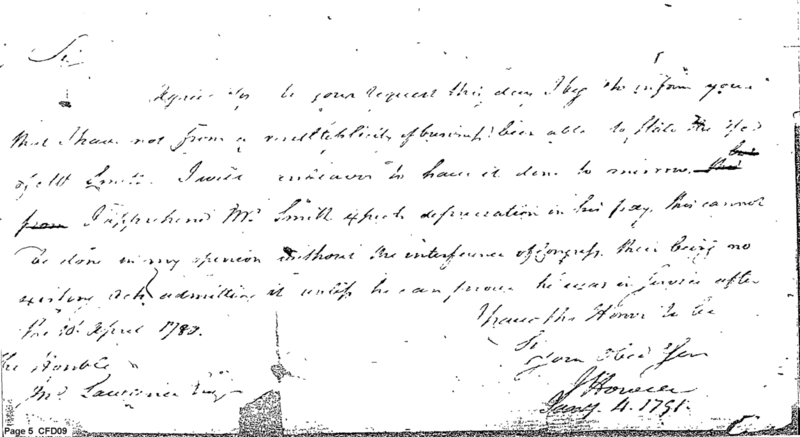 Sir
Agree to your request this day I beg to inform you
that I have not from a multiplicity of business been able to State the
of Mr Smith. I will endeavor to have it done to morrow
from I apprehend Mr. Smith expects depreciation in his pay, this cannot
be done in my opinion without the interference of Congress there being no
existing act admitting it unless he can prove he was in service after
the 10 April 1780.
I have the Honor to be
Sir
Your Obed Ser
J Howell
Jany 4. 1791.
The Honble
Jno Lawrence Esqr
Page 5 CFD09